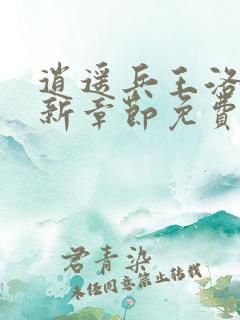 逍遥兵王洛
新章節免費
君青染
未经同意禁止转载